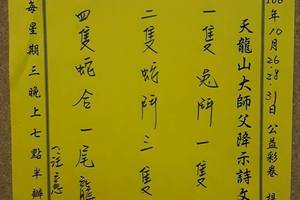 100年10月26.28.31日公益彩卷 提
天龍山大師父降示詩文
一隻兎鬥一隻
二隻蛇鬥三隻
四隻蛇合一尾龍
(注意
每星期三晚上七點半辦